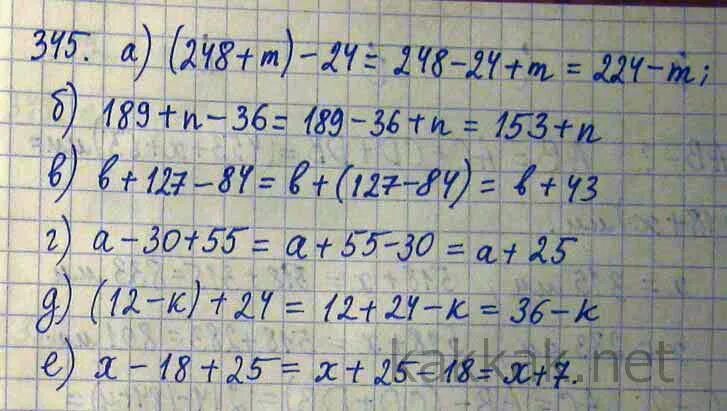 345. а) (248+m)-24= 248-24+m = 224-m;
б) 189+n-36= 189-36+n = 153+n
в) в+127-84= в+(127-84)= в+43
г) а-30+55= а+55-30= а+25
д) (12-к)+24 = 12+24-к = 36-к
е) х-18+25= х+25-18= х+7.
kakkak.net